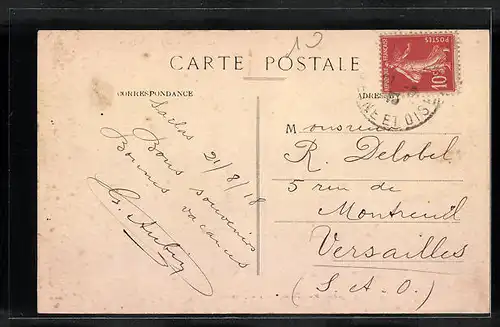 13
CARTE POSTALE
CORRESPONDANCE
ADRESSE
POSTES
10c
NE ET OISE
Saclas 21/8/18
Bons souvenirs
Bonnes vacances
G. Aubry
Monsieur
R. Delobel
5 rue de
Montreuil
Versailles
(S.-et-O.)